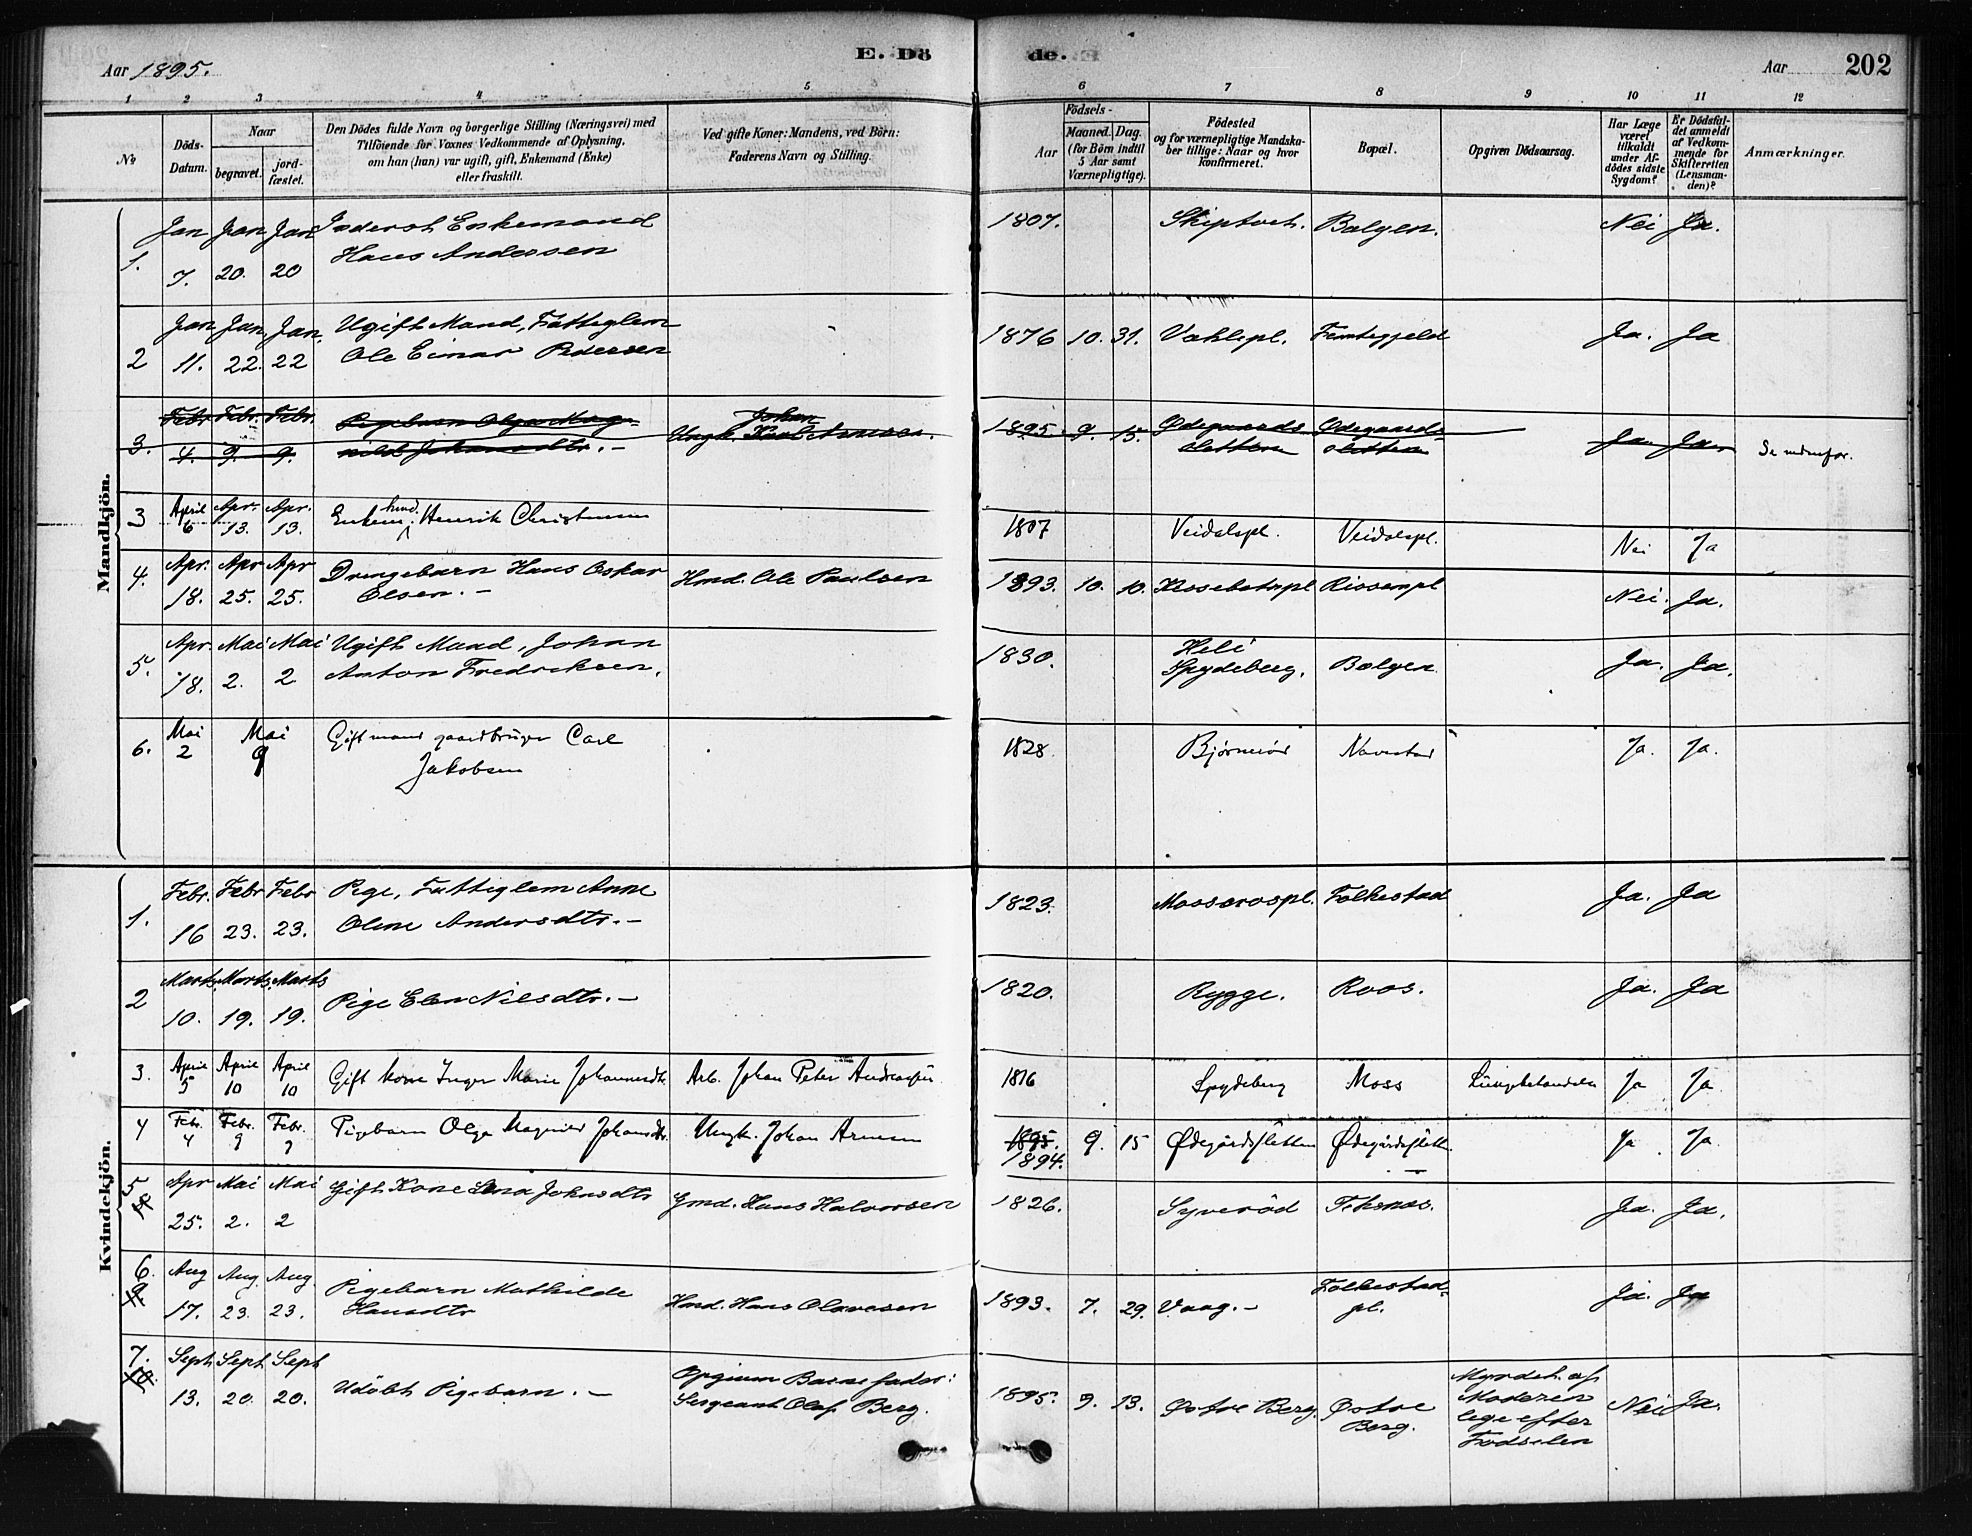 Aar 1895.
E. Dö
de.
Aar
202
1 2 3 4 5 6 7 8 9 10 11 12
No
Döds-Datum.
Naar
begravet.
jord-fæstet.
Den Dödes fulde Navn og borgerlige Stilling (Næringsvei) med
Tilföiende for Voxnes Vedkommende af Oplysning,
om han (hun) var ugift, gift, Enkemand (Enke)
eller fraskilt.
Ved gifte Koner: Mandens, ved Börn:
Faderens Navn og Stilling.
Födsels-
Aar
Maaned. Dag.
(for Börn indtil
5 Aar samt
Værnepligtige).
Födested
og for værnepligtige Mandska-
ber tillige: Naar og hvor
konfirmeret.
Bopæl.
Opgiven Dödsaarsag.
Har Læge
været
tilkaldt
under Af-
dödes sidste
Sygdom?
Er Dödsfal-
det anmeldt
af Vedkom-
mende for
Skifteretten
(Lensman-
den)?
Anmærkninger.
Mandkjön.
1. Jan 7. Jan 20. Jan 20 Inderst Enkemand
Hans Andersen
1807. Skiptvet. Bølgen. Nei Ja.
2 Jan 11. Jan. 22. Jan. 22 Ugift Mand, Fattiglem
Ole Einar Pedersen
1876 10. 31. Vahlspl. Femtegjeld Ja. Ja
3. Febr 4. Febr. 9. Febr. 9. Pigebarn Olga Mag-
nild Johansdtr. -
Johan
Ungk. Karl Arnesen.
1895. 9. 15. Ødegaards
sletten
Ødegaards-
sletten
Ja Ja. Se nedenfor.
3 April 6 Apr. 13. Apr. 13. Enkem. Henrik Christensen
1807 Veidalspl. Veidalspl. Nei Ja
4. Apr. 18. Apr 25. Apr 25. Drengebarn Hans Oskar
Olsen. -
Hmd. Ole Paulsen
1893. 10. 10. Rissenpl Nei. Ja.
5. Apr. 18. Mai 2. Mai 2 Ugift Mand, Johan
Anton Fredriksen.
1830. Heli
Spydeberg. Bølgen. Ja. Ja.
6. Mai 2 Mai 9 Gift mand gaardbruger Carl
Jakobsen
1828 Bjørnerød Navestad Ja. Ja.
Kvindekjön.
1. Febr. 16 Febr 23. Febr 23. Pige, Fattiglem Anne
Oline Andersdtr. -
1823. Mosserospl. Folkestad Ja. Ja
2 Marts 10. Marts. 19. Marts 19. Pige Elen Nilsdtr. -
1820. Rygge. Roos. Ja. Ja
3. April 5 April 10 April 10 Gift kone Inger Marie Johannesdtr. Arb. Johan Peter Andreasen.
1816 Spydeberg Moss Lungebetændelse Ja Ja
4 Febr. 4 Febr. 9 Febr. 9 Pigebarn Olga Magnild Johansdtr. Ungk. Johan Arnesen
1895.
1894. 9. 15 Ødegårdsletten Ødegårdslett. Ja Ja
5 Apr 25. Mai 2. Mai 2 Gift Kone Lena Johnsdtr Gmd. Hans Halvorsen
1826. Syverød Feksnes. Ja. Ja.
6. Aug 17. Aug. 23. Aug. 23. Pigebarn Mathilde
Hansdtr
Hmd. Hans Olavesen
1893. 7. 29. Vaag. - Folkestad-
pl. Ja. Ja
7. Sept 13. Sept 20. Sept 20. Udöbt Pigebarn. -
Opgiven Barnefader:
Sergeant Olaf Berg.
1895. 9. 13. Østre Berg. Østre
Berg.
Myrdet af
Moderen
lige efter
Fødselen
Nei Ja.